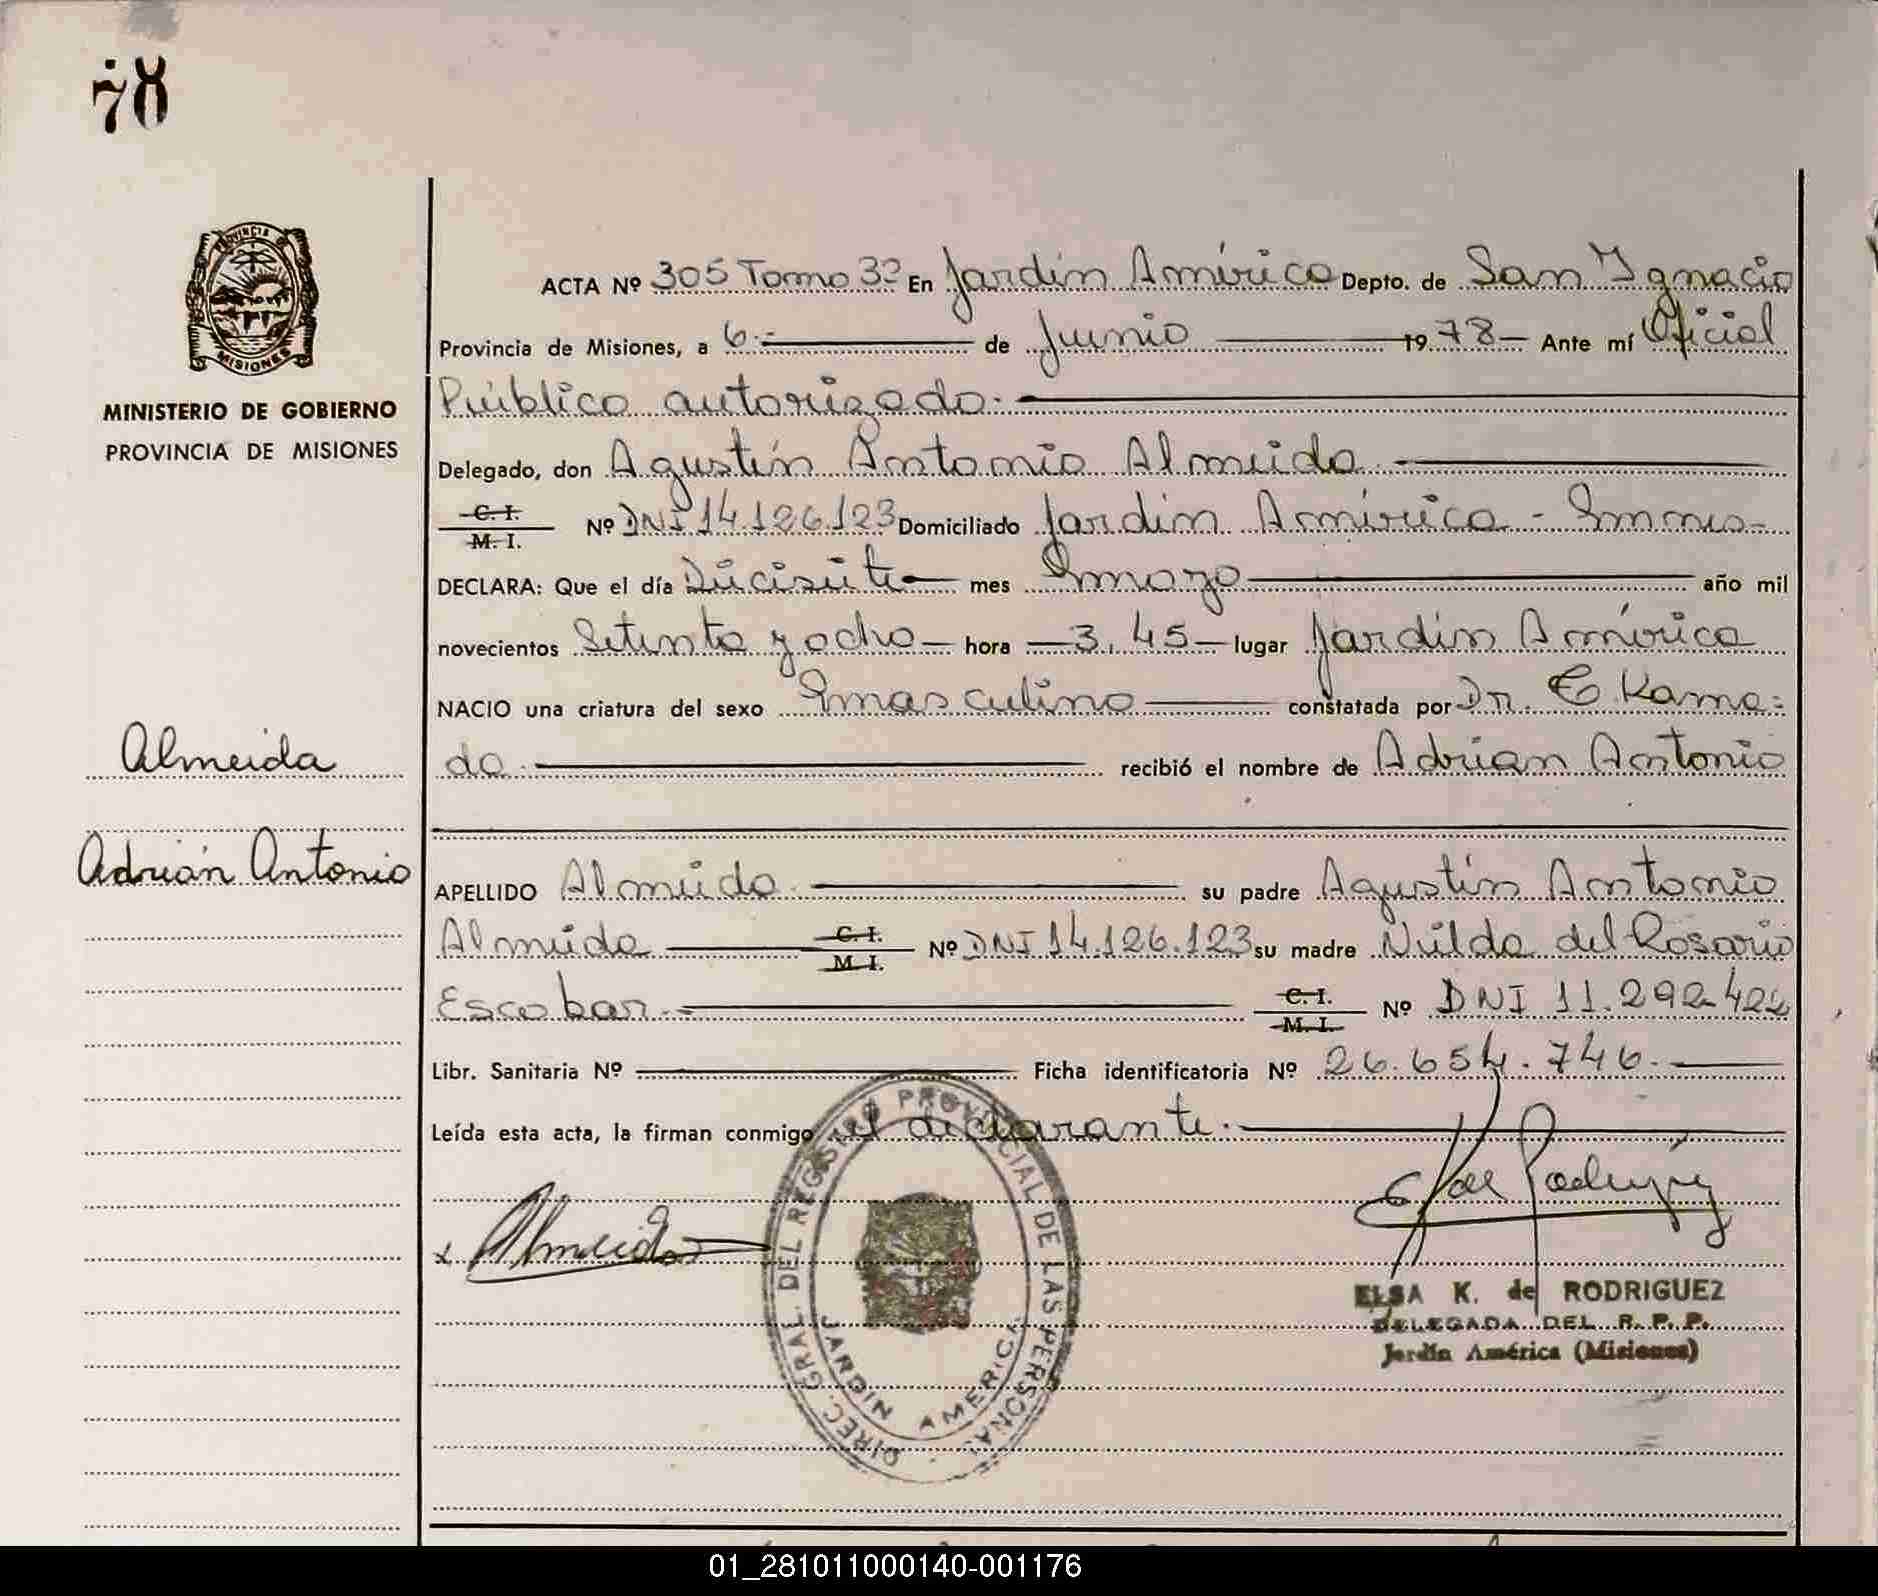 78
PROVINCIA DE
MISIONES
MINISTERIO DE GOBIERNO
PROVINCIA DE MISIONES
Almeida
Adrián Antonio
ACTA Nº 305 Tomo 3º En Jardín América Depto. de San Ignacio
Provincia de Misiones, a 6.- de Junio 1978- Ante mí Oficial
Público autorizado.
Delegado, don Agustín Antonio Almeida
C. I. M. I. Nº DNI 14.126.123 Domiciliado Jardín América - Mnes-
DECLARA: Que el día Diecisiete mes Mayo año mil
novecientos Setenta y ocho - hora - 3,45 - lugar Jardín América
NACIO una criatura del sexo Masculino constatada por Dr. C. Kama-
da recibió el nombre de Adrian Antonio
APELLIDO Almeida su padre Agustín Antonio
Almeida C. I. M. I. Nº DNI 14.126.123 su madre Nilda del Rosario
Escobar.- C. I. M. I. Nº DNI 11.292.422
Libr. Sanitaria Nº Ficha identificatoria Nº 26.654.746.
Leída esta acta, la firman conmigo el declarante.
x Almeida
DIREC. GRAL. DEL REGISTRO PROVINCIAL DE LAS PERSONAS
JARDIN AMERICA
E K de Rodríguez
ELSA K. de RODRIGUEZ
DELEGADA DEL R. P. P.
Jardín América (Misiones)
01_281011000140-001176